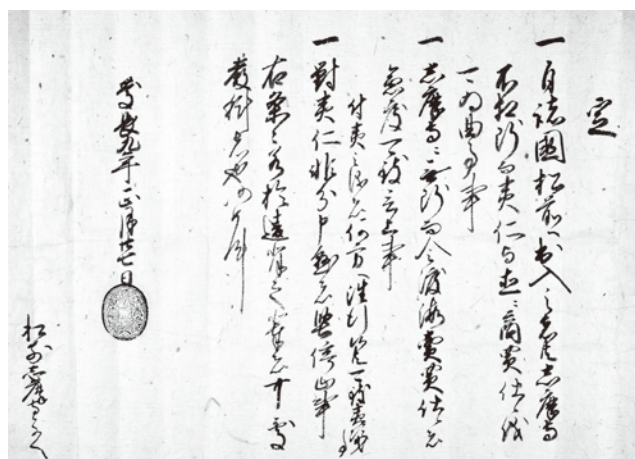 定
一自諸國松前へ出入之者共志摩守
不相断而夷仁与直ニ商買仕候儀
可為曲事事
一志摩守ニ無断而令渡海賣買仕候者
急度可致言上事
付夷之儀者何方へ往行候共可致夷次第事
一對夷仁非分申懸者堅停止事
右条々若於違背之輩者可處
厳科者也仍如件
慶長九年正月廿七日
松前志摩守とのへ